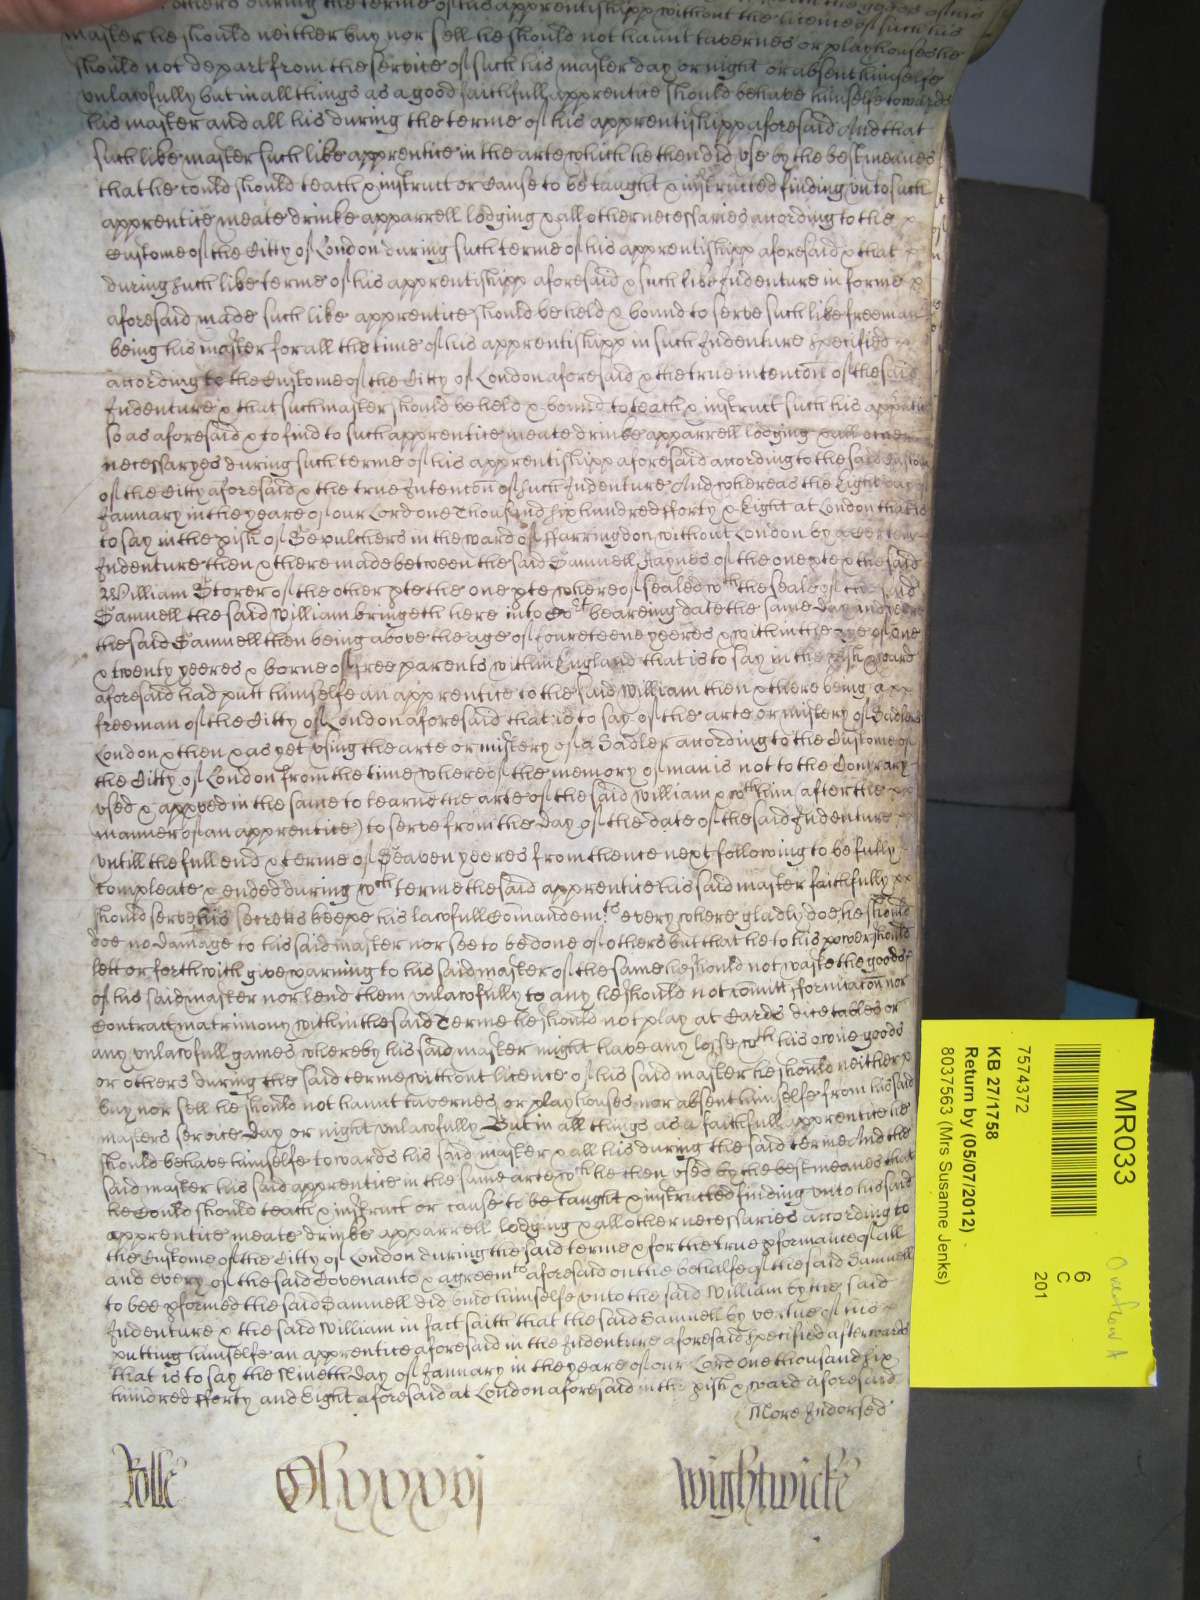 others during the terme of his apprentishipp without the licence of such his
master he should neither buy nor sell he should not haunt tavernes or playhouses he
should not depart from the service of such his master day or night or absent himselfe
unlawfully but in all things as a good faithfull apprentice should behave himselfe towards
his master and all his during the terme of his apprentishipp aforesaid And that
such like master such like apprentice in the arte which he then did use by the best meanes
that he could should teach & instruct or cause to be taught & instructed finding unto such
apprentice meate drinke apparrell lodging & all other necessaries acording to the
Custome of the Citty of London during such terme of his apprentishipp aforesaid & that
during such like terme of his apprentishipp aforesaid & such like Indenture in forme
aforesaid made such like apprentice should be held & bound to serve such like freeman
being his master for all the time of his apprentishipp in such Indenture specified
acording to the Custome of the Citty of London aforesaid & the true intencon of the said
Indenture & that such master should be held & bound to teach & instruct such his
so as aforesaid & to find to such apprentice meate drinke apparrell lodging & all other
necessaryes during such terme of his apprentishipp aforesaid acording to the said Custome
of the Citty aforesaid & the true Intencon of such Indenture And whereas the Eight day of
January in the yeare of our Lord one Thousand six hundred fforty & Eight at London that is
to say in the pish of Sepulchers in the ward of ffarringdon without London by a certeine
Indenture then & there made betweene the said Samuell Haynes of the one pte & the said
William Storer of the other pte the one pte whereof sealed wth the seale of the said
Samuell the said William bringeth here into Cort beareing date the same day and yeare
the said Samuell then being above the age of foureteene yeeres & within the age of one
& twenty yeeres & borne of free parents within England that is to say in the pish & ward
aforesaid had putt himselfe an apprentice to the said William then & there being a
freeman of the Citty of London aforesaid that is to say of the arte or mistery of Sadlers
London & then & as yet using the arte or mistery of a Sadler acording to the Custome of
the Citty of London from the time whereof the memory of man is not to the Contrary
used & appved in the same to learne the arte of the said William & wth him after the
manner of an apprentice) to serve from the day of the date of the said Indenture
untill the full end & terme of Seaven yeeres from thence next following to be fully
compleate & ended during wch terme the said apprentice his said master faithfully
should serve his secretts keepe his lawfull Comandemts every where gladly doe he should
doe no damage to his said master nor see to be done of others but that he to his power should
lett or forthwith give warning to his said master of the same he should not waste the goods
of his said master nor lend them unlawfully to any he should not comitt fornicacon nor
Contract matrimony within the said Terme he should not play at Cards dice tables or
any unlawfull games whereby his said master might have any losse wth his owne goods
or others during the said terme without licence of his said master he should neither
buy nor sell he should not haunt tavernes or playhouses nor absent himselfe from his said
masters service day or night unlawfully But in all things as a faithfull apprentice he
should behave himselfe towards his said master & all his during the said terme And the
said master his said apprentice in the same arte wch he then used by the best meanes that
he Could should teach & instruct or cause to be taught & instructed finding unto his said
apprentice meate drinke apparrell lodging & all other necessaries acording to
the Custome of the Citty of London during the said terme & for the true pformance of all
and every of the said Covenants & agreemts aforesaid on the behalfe of the said Samuell
to bee pformed the said Samuell did bind himselfe unto the said William by the said
Indenture & the said William in fact saith that the said Samuell by vertue of his
putting himselfe an apprentice aforesaid in the Indenture aforesaid specified afterwards
that is to say the Nineth day of January in the yeare of our Lord one thousand six
hundred fforty and Eight aforesaid at London aforesaid in the pish & ward aforesaid
More Indorsed
Rolle
Wightwicke
MR033
7574372
KB 27/1758
Return by (05/07/2012)
8037563 (Mrs Susanne Jenks)
6
C
201
Overflow A